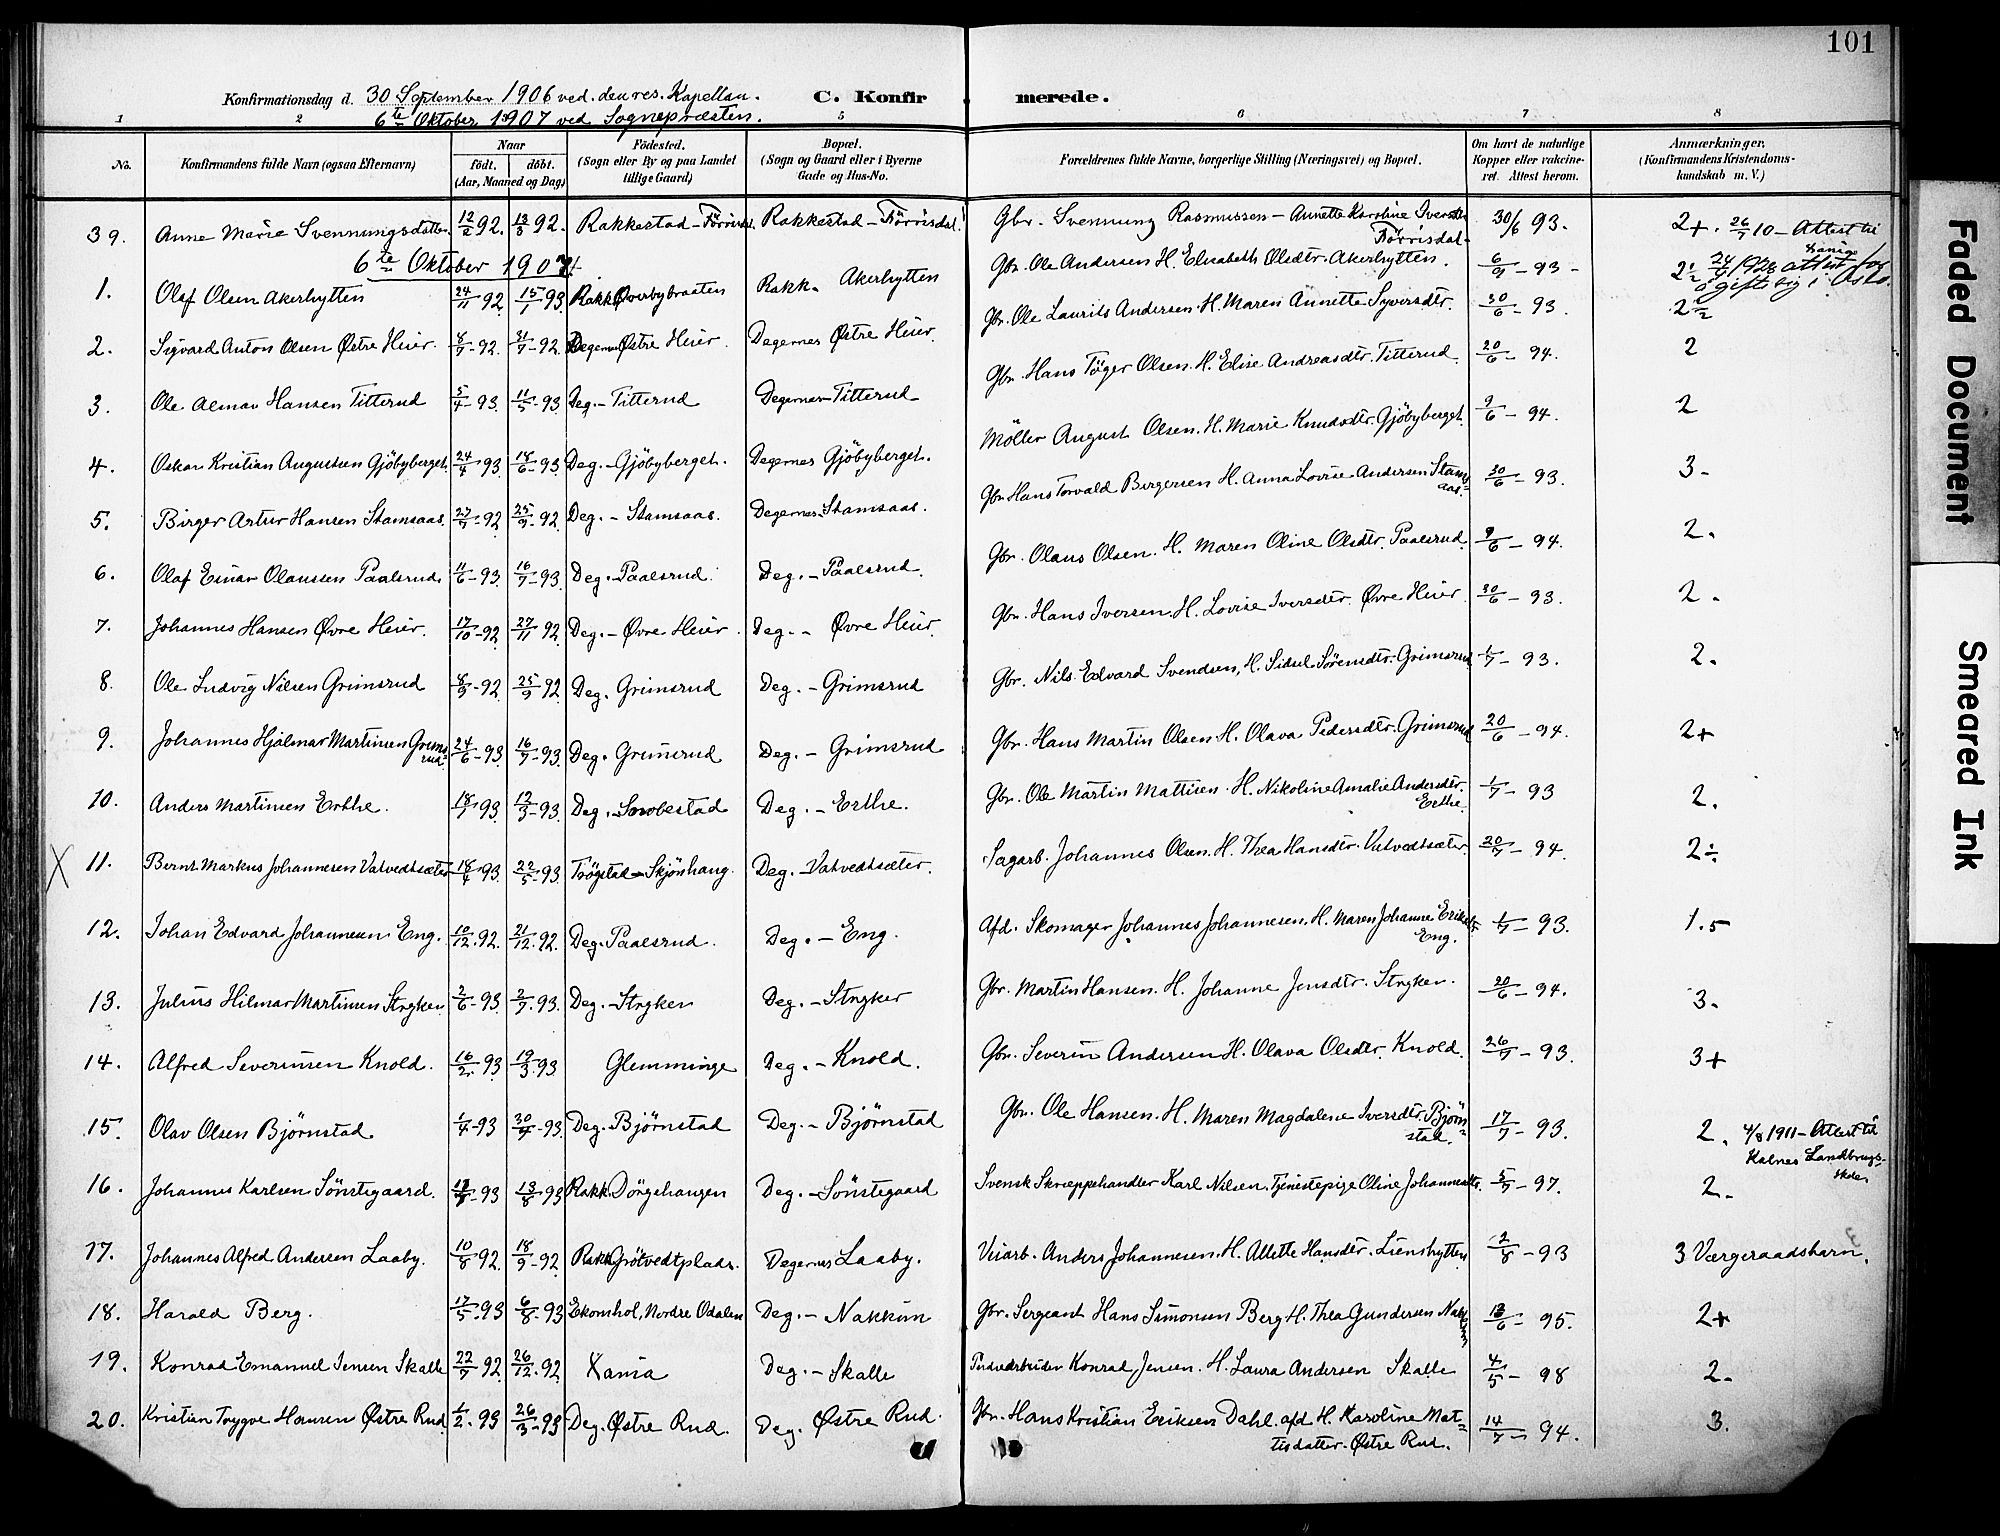 101
Konfirmationsdag d. 30 September 1906 ved den res. Kapellan. C. Konfirmerede.
6te Oktober 1907 ved Sognepræsten.
1 2 5 6 7 8
No. Konfirmandens fulde Navn (ogsaa Efternavn) Naar født. døbt. (Aar, Maaned og Dag) Fødested. (Sogn eller By og paa Landet tillige Gaard) Bopæl. (Sogn og Gaard eller i Byerne Gade og Hus-No. Forældrenes fulde Navne, borgerlige Stilling (Næringsvei) og Bopæl. Om havt de naturlige Kopper eller vaccineret. Attest herom. Anmærkninger. (Konfirmandens Kristendomskundskab m. V.)
39. Anne Marie Svennungsdatter 12/2 92. 13/3 92. Rakkestad - Rakkestad - Törrisdal Gbr. Svennung Rasmussen - Annette Karoline Iversdtr Törrisdal. 30/6 93. 2+. 26/7 10 - Attest til Xania
6te Oktober 1907
1. Olaf Olsen Akerhytten 24/11 92 15/1 93 Rakk. Øverbybraaten Rakk. Akerhytten Gbr. Ole Andersen H. Elisabeth Olsdtr. Akerhytten. 6/9 - 93 - 2½ 24/9 1928 attest for å gifte sig i Oslo.
2. Sigvard Anton Olsen Østre Heier. 8/7 - 92. 31/7 - 92 Degernes Østre Heier. Degernes Østre Heier. Gbr. Ole Laurits Andersen. H. Maren Annette Syversdtr. 30/6 - 93. 2½
3. Ole Almar Hansen Titterud 5/4 - 93. 11/5 - 93. Deg. - Titterud Degernes - Titterud Gbr. Hans Töger Olsen. H. Elise Andreasdtr. Titterud. 20/6 - 94. 2
4. Oskar Kristian Augustsen Gjöbyberget. 24/4 93 18/6 - 93 Deg. - Gjöbyberget. Degernes Gjöbyberget. Möller August Olsen. H. Marie Knudsdtr. Gjöbyberget. 9/6 - 94. 2
5. Birger Artur Hansen Stamsaas. 27/7 - 92 25/9 - 92. Deg. - Stamsaas. Degernes - Stamsaas. Gbr. Hans Torvald Birgersen H. Anna Lovise Andersen Stamsaas. 30/6 - 93. 3 -
6. Olaf Einar Olaussen Paalsrud. 11/6 - 93. 16/7 - 93. Deg. - Paalsrud. Deg. - Paalsrud. Gbr. Olaus Olsen. H. Maren Oline Olsdtr. Paalsrud. 9/6 - 94. 2.
7. Johannes Hansen Øvre Heier. 17/10 - 92 27/11 92. Deg. - Øvre Heier. Deg. - Øvre Heier. Gbr. Hans Iversen. H. Lovise Iversdtr. Øvre Heier. 30/6 - 93. 2.
8. Ole Ludvig Nilsen Grimsrud 25/9 92 Deg. Grimsrud Deg. - Grimsrud Gbr. Nils Edvard Svendsen, H. Sidsel Sörensdtr. Grimsrud 1/7 - 93. 2.
9. Johannes Hjalmar Martinsen Grimsrud. 24/6 - 93. 16/7 - 93. Deg. Grimsrud Deg. - Grimsrud Gbr. Hans Martin Olsen. H. Olava Pedersdtr. Grimsrud 20/6 - 94. 2+
10. Anders Martinsen Erthe. 18/1 93. 12/3 - 93. Deg. Deg. - Erthe. Gbr. Ole Martin Mattisen. H. Nikoline Amalie Andersdtr. Erthe 1/7 - 93 2.
X 11. Bernt Markus Johannesen Vatvedtsæter 18/4 93. 22/5 - 93. Trögstad - Skjönhaug. Deg. - Vatvedtsæter. Sagarb. Johannes Olsen. H. Thea Hansdtr. Vatvedtsæter. 20/7 - 94. 2÷
12. Johan Edvard Johannesen Eng. 10/12. 92. 21/12. 92. Deg. Paalsrud. Deg. - Eng. Afd. Skomager Johannes Johannesen. H. Maren Johanne Eriksdtr. Eng. 1/7 - 93. 1.5
13. Julius Hilmar Martinsen Stryken 2/6 - 93. 2/7. 93. Deg. - Stryken Deg. - Stryker Gbr. Martin Hansen. H. Johanne Jensdtr. Stryken. 20/6 - 94. 3.
14. Alfred Severinsen Knold. 16/2 93 19/3. 93 Glemminge Deg. - Knold. Gbr. Severin Andersen H. Olava Olsdtr. Knold. 26/7 - 93. 3+
15. Olav Olsen Bjørnstad 1/4 - 93 30/4 - 93. Deg. Bjørnstad Deg. - Bjørnstad Gbr. Ole Hansen. H. Maren Magdalene Iversdtr. Bjørnstad. 17/7 - 93. 2. 4/8 1911 - Attest til Kalnes Landbrugsskole.
16. Johannes Karlsen Sönstegaard. 93 13/8 93 Rakk. Dörgehaugen Deg. - Sönstegaard Svensk Skræppehandler Karl Nilsen. Tjenestepige Oline Johannesdtr. 5/7 - 97. 2.
17. Johannes Alfred Andersen Laaby. 10/8 92. 18/9 - 92 Rakk. Grötvedtplads. Degernes Laaby. Veiarb. Anders Johannesen. H. Alette Hansdtr. Lienshytten 2/8 - 93 3 Værgeraadsbarn.
18. Harald Berg. 17/5 - 93 6/8 - 93 Ekornhol, Nordre Odalen Deg. - Nakkim Gbr. Sergeant Hans Simonsen Berg H. Thea Gundersen 13/6 - 95. 2+
19. Konrad Emanuel Jensen Skalle 22/7 92 26/12. 92 Xania Deg. - Skalle Konrad Jensen. H. Laura Andersen Skalle 4/5 - 98 2.
20. Kristian Trygve Hansen Østre Rud 1/2. 93 26/3 - 93 Deg. Østre Rud. Deg. Østre Rud. Gbr. Hans Kristian Eriksen Dahl. afd H. Karoline Mattisdatter. Østre Rud. 14/7 - 94. 3.
Faded Document
Smeared Ink